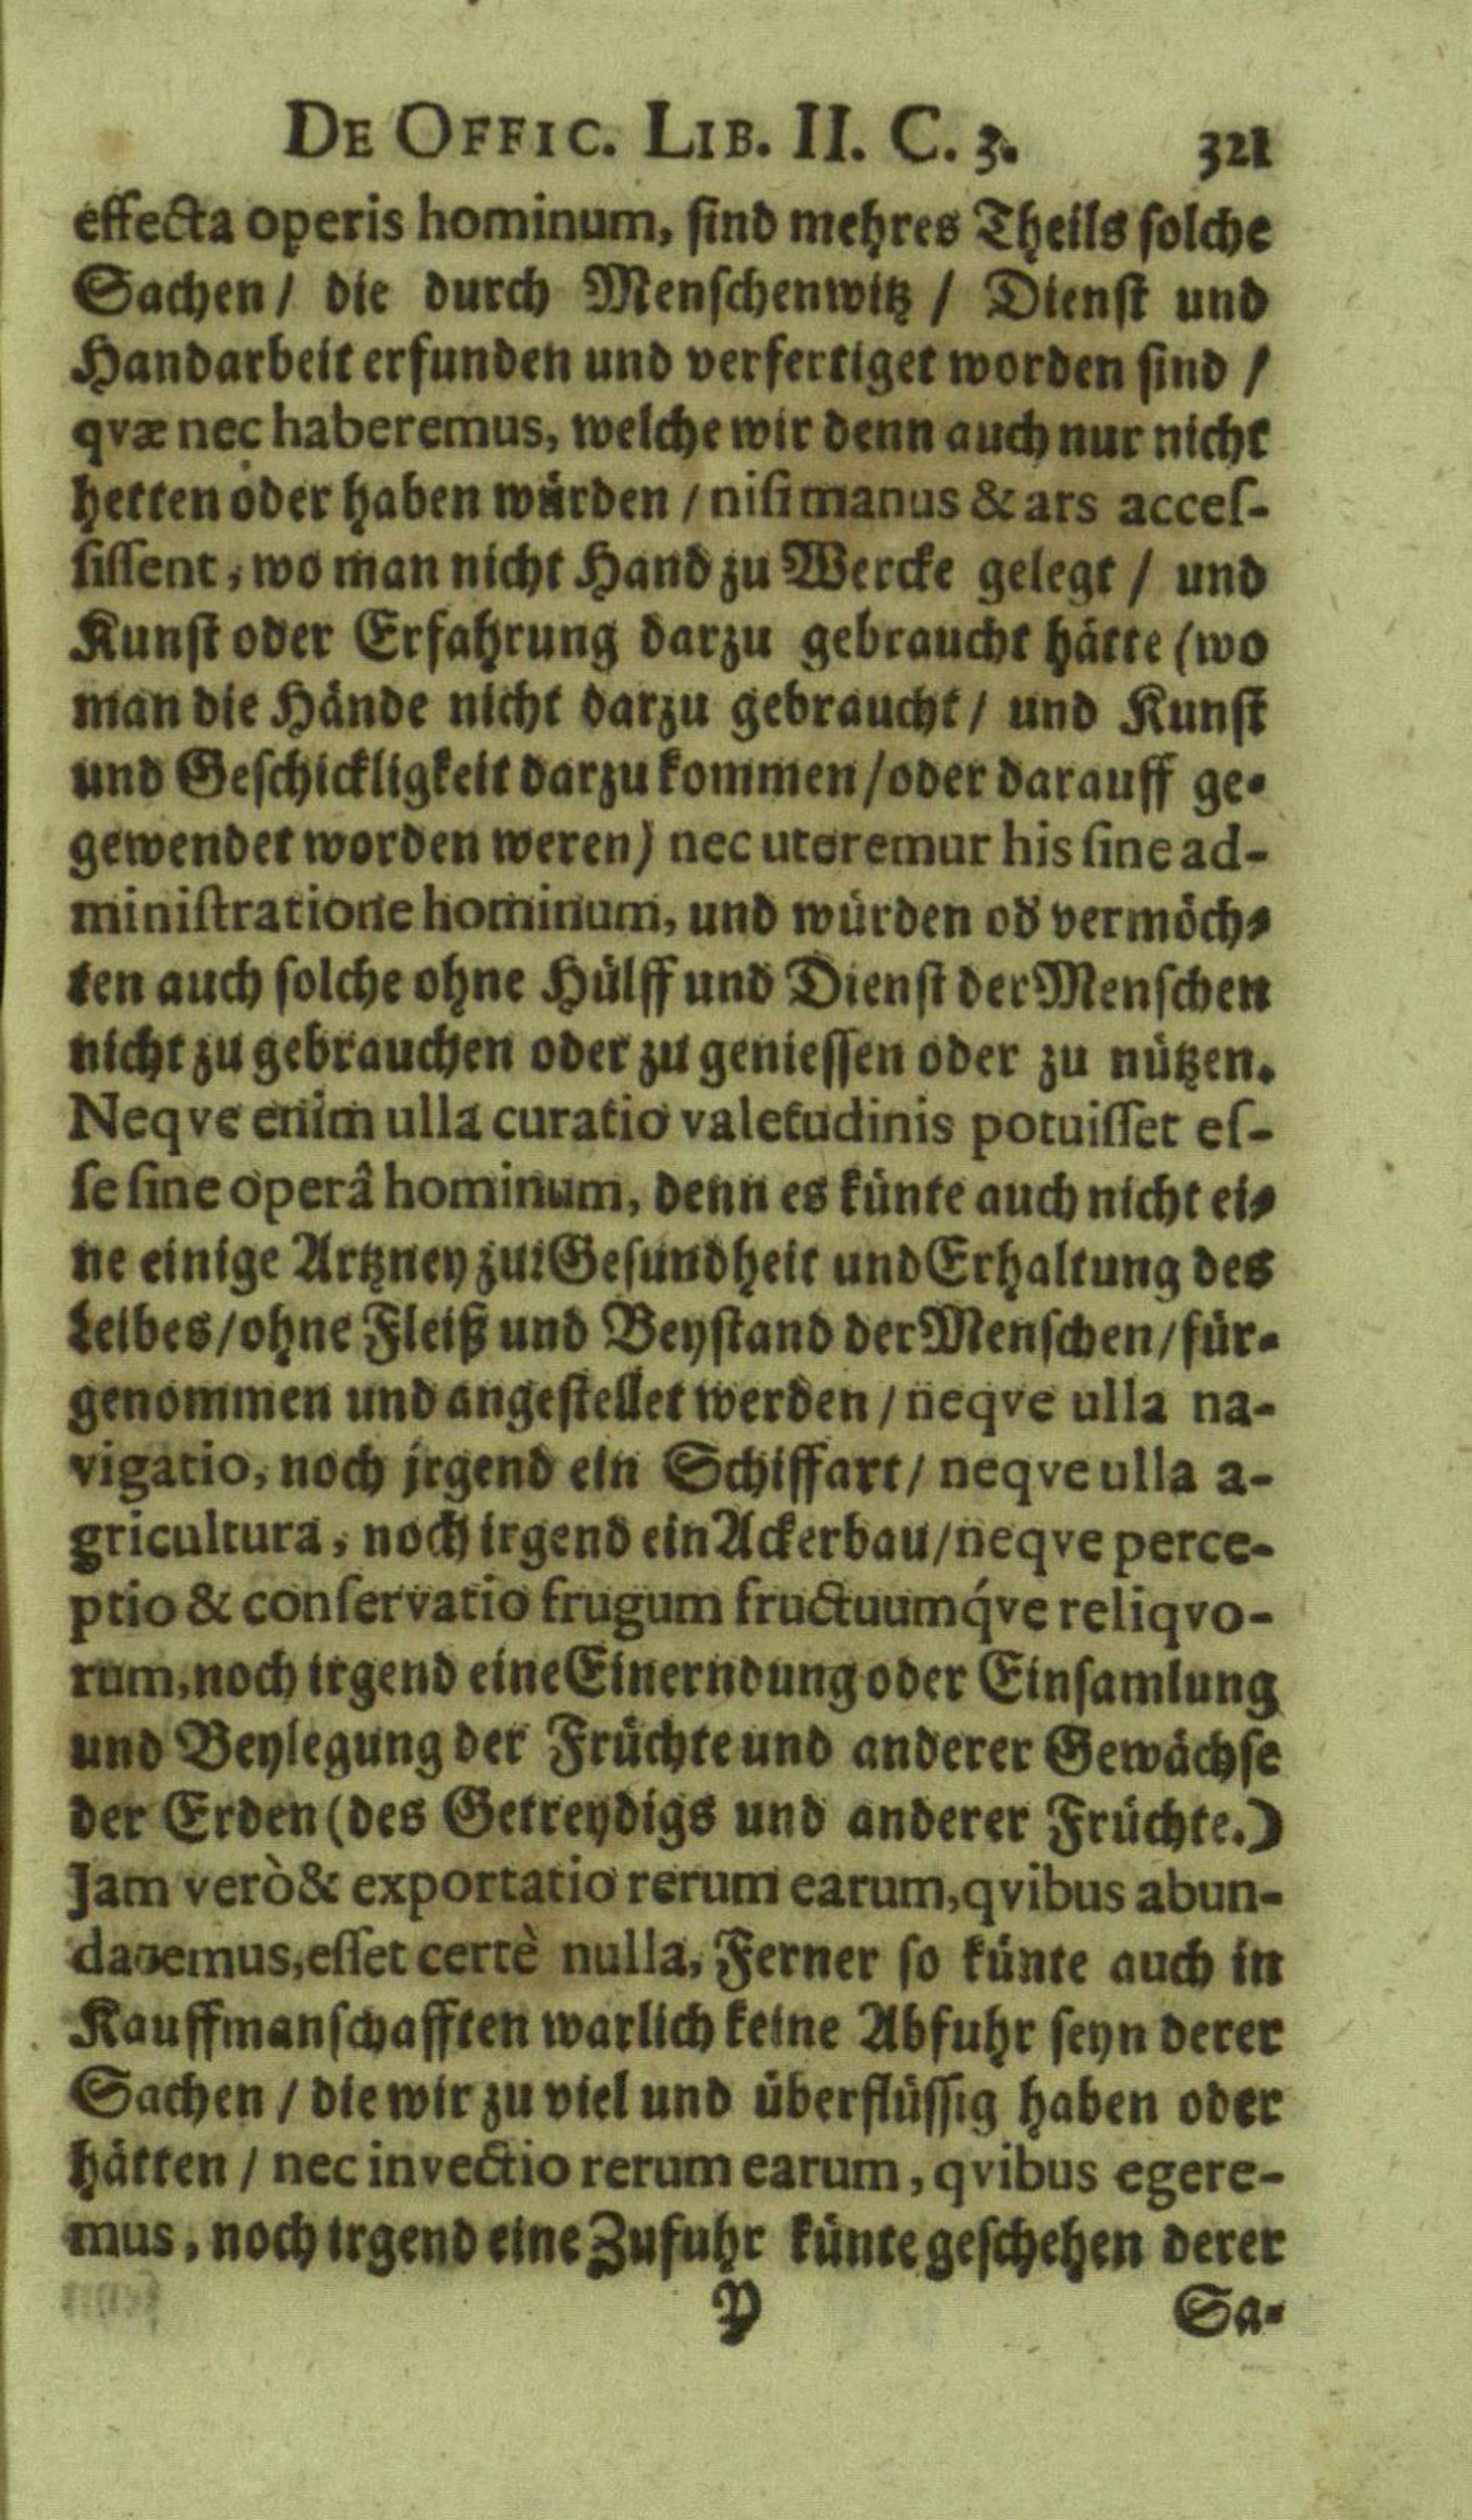 DE OFFIC. LIB. II. C. 3. 321
effecta operis hominum, sind mehres Theils solche
Sachen / die durch Menschenwitz / Dienst und
Handarbeit erfunden und verfertiget worden sind /
qvæ nec haberemus, welche wir denn auch nur nicht
hetten oder haben würden / nisi manus & ars acces-
sissent, wo man nicht Hand zu Wercke gelegt / und
Kunst oder Erfahrung darzu gebraucht hätte (wo
man die Hände nicht darzu gebraucht / und Kunst
und Geschickligkeit darzu kommen / oder darauff ge-
gewendet worden weren) nec uteremur his sine ad-
ministratione hominum, und würden od vermöch-
ten auch solche ohne Hülff und Dienst der Menschen
nicht zu gebrauchen oder zu geniessen oder zu nützen.
Neqve enim ulla curatio valetudinis potuisset es-
se sine operâ hominum, denn es künte auch nicht ei-
ne einige Artzney zur Gesundheit und Erhaltung des
Leibes / ohne Fleiß und Beystand der Menschen / für-
genommen und angestellet werden / neqve ulla na-
vigatio, noch jrgend ein Schiffart / neqve ulla a-
gricultura, noch irgend ein Ackerbau / neqve perce-
ptio & conservatio frugum fructuumq́ve reliqvo-
rum, noch irgend eine Einerndung oder Einsamlung
und Beylegung der Früchte und anderer Gewächse
der Erden (des Getreydigs und anderer Früchte.)
Jam verò & exportatio rerum earum, qvibus abun-
daremus, esset certè nulla, Ferner so künte auch in
Kauffmanschafften warlich keine Abfuhr seyn derer
Sachen / die wir zu viel und überflüssig haben oder
hätten / nec invectio rerum earum, qvibus egere-
mus, noch irgend eine Zufuhr künte geschehen derer
Y Sa-